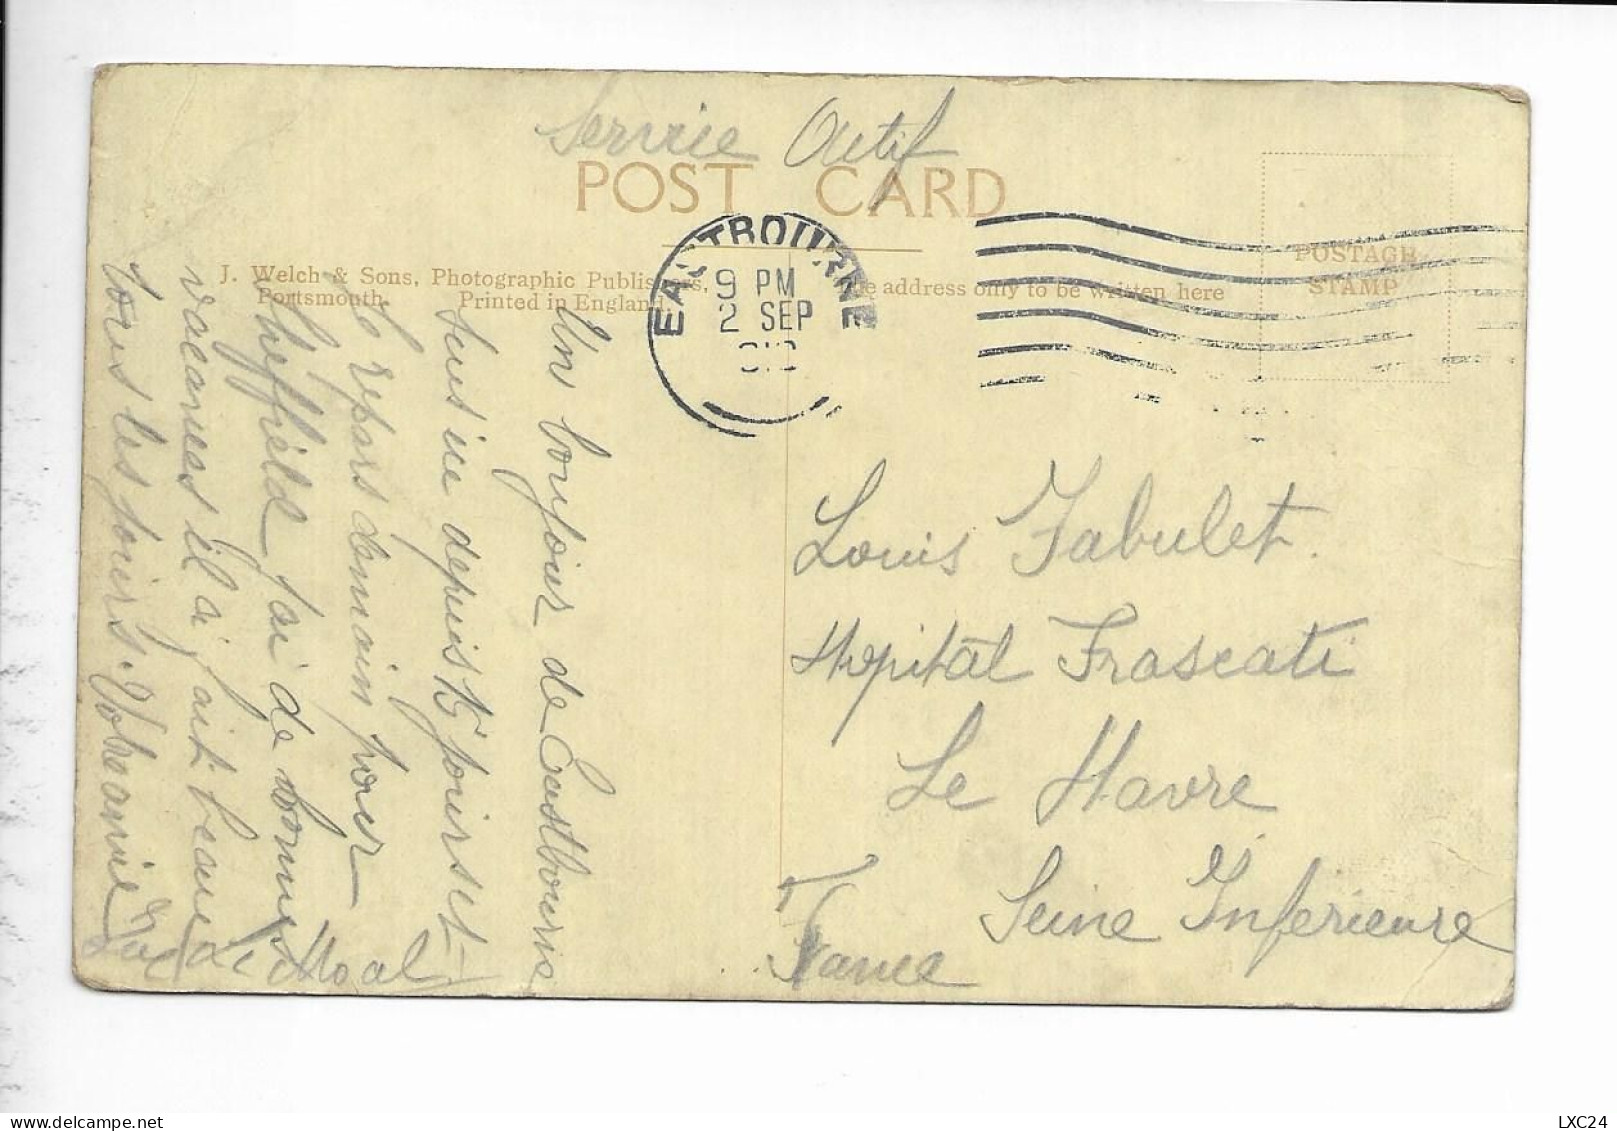 Service Actif
POST CARD
J. Welch & Sons, Photographic Publishers,
Portsmouth. Printed in England
address only to be written here
POSTAGE
STAMP
EASTBOURNE
9 PM
2 SEP
Un bonjour de Eastbourne
suis ici depuis 15 jours et
repars demain pour
Sheffield j'ai de bonnes
vacances il a fait beau
tous les jours.
Moal
Louis Fabulet.
Hopital Frascati
Le Havre
Seine Inferieure
France
LXC24